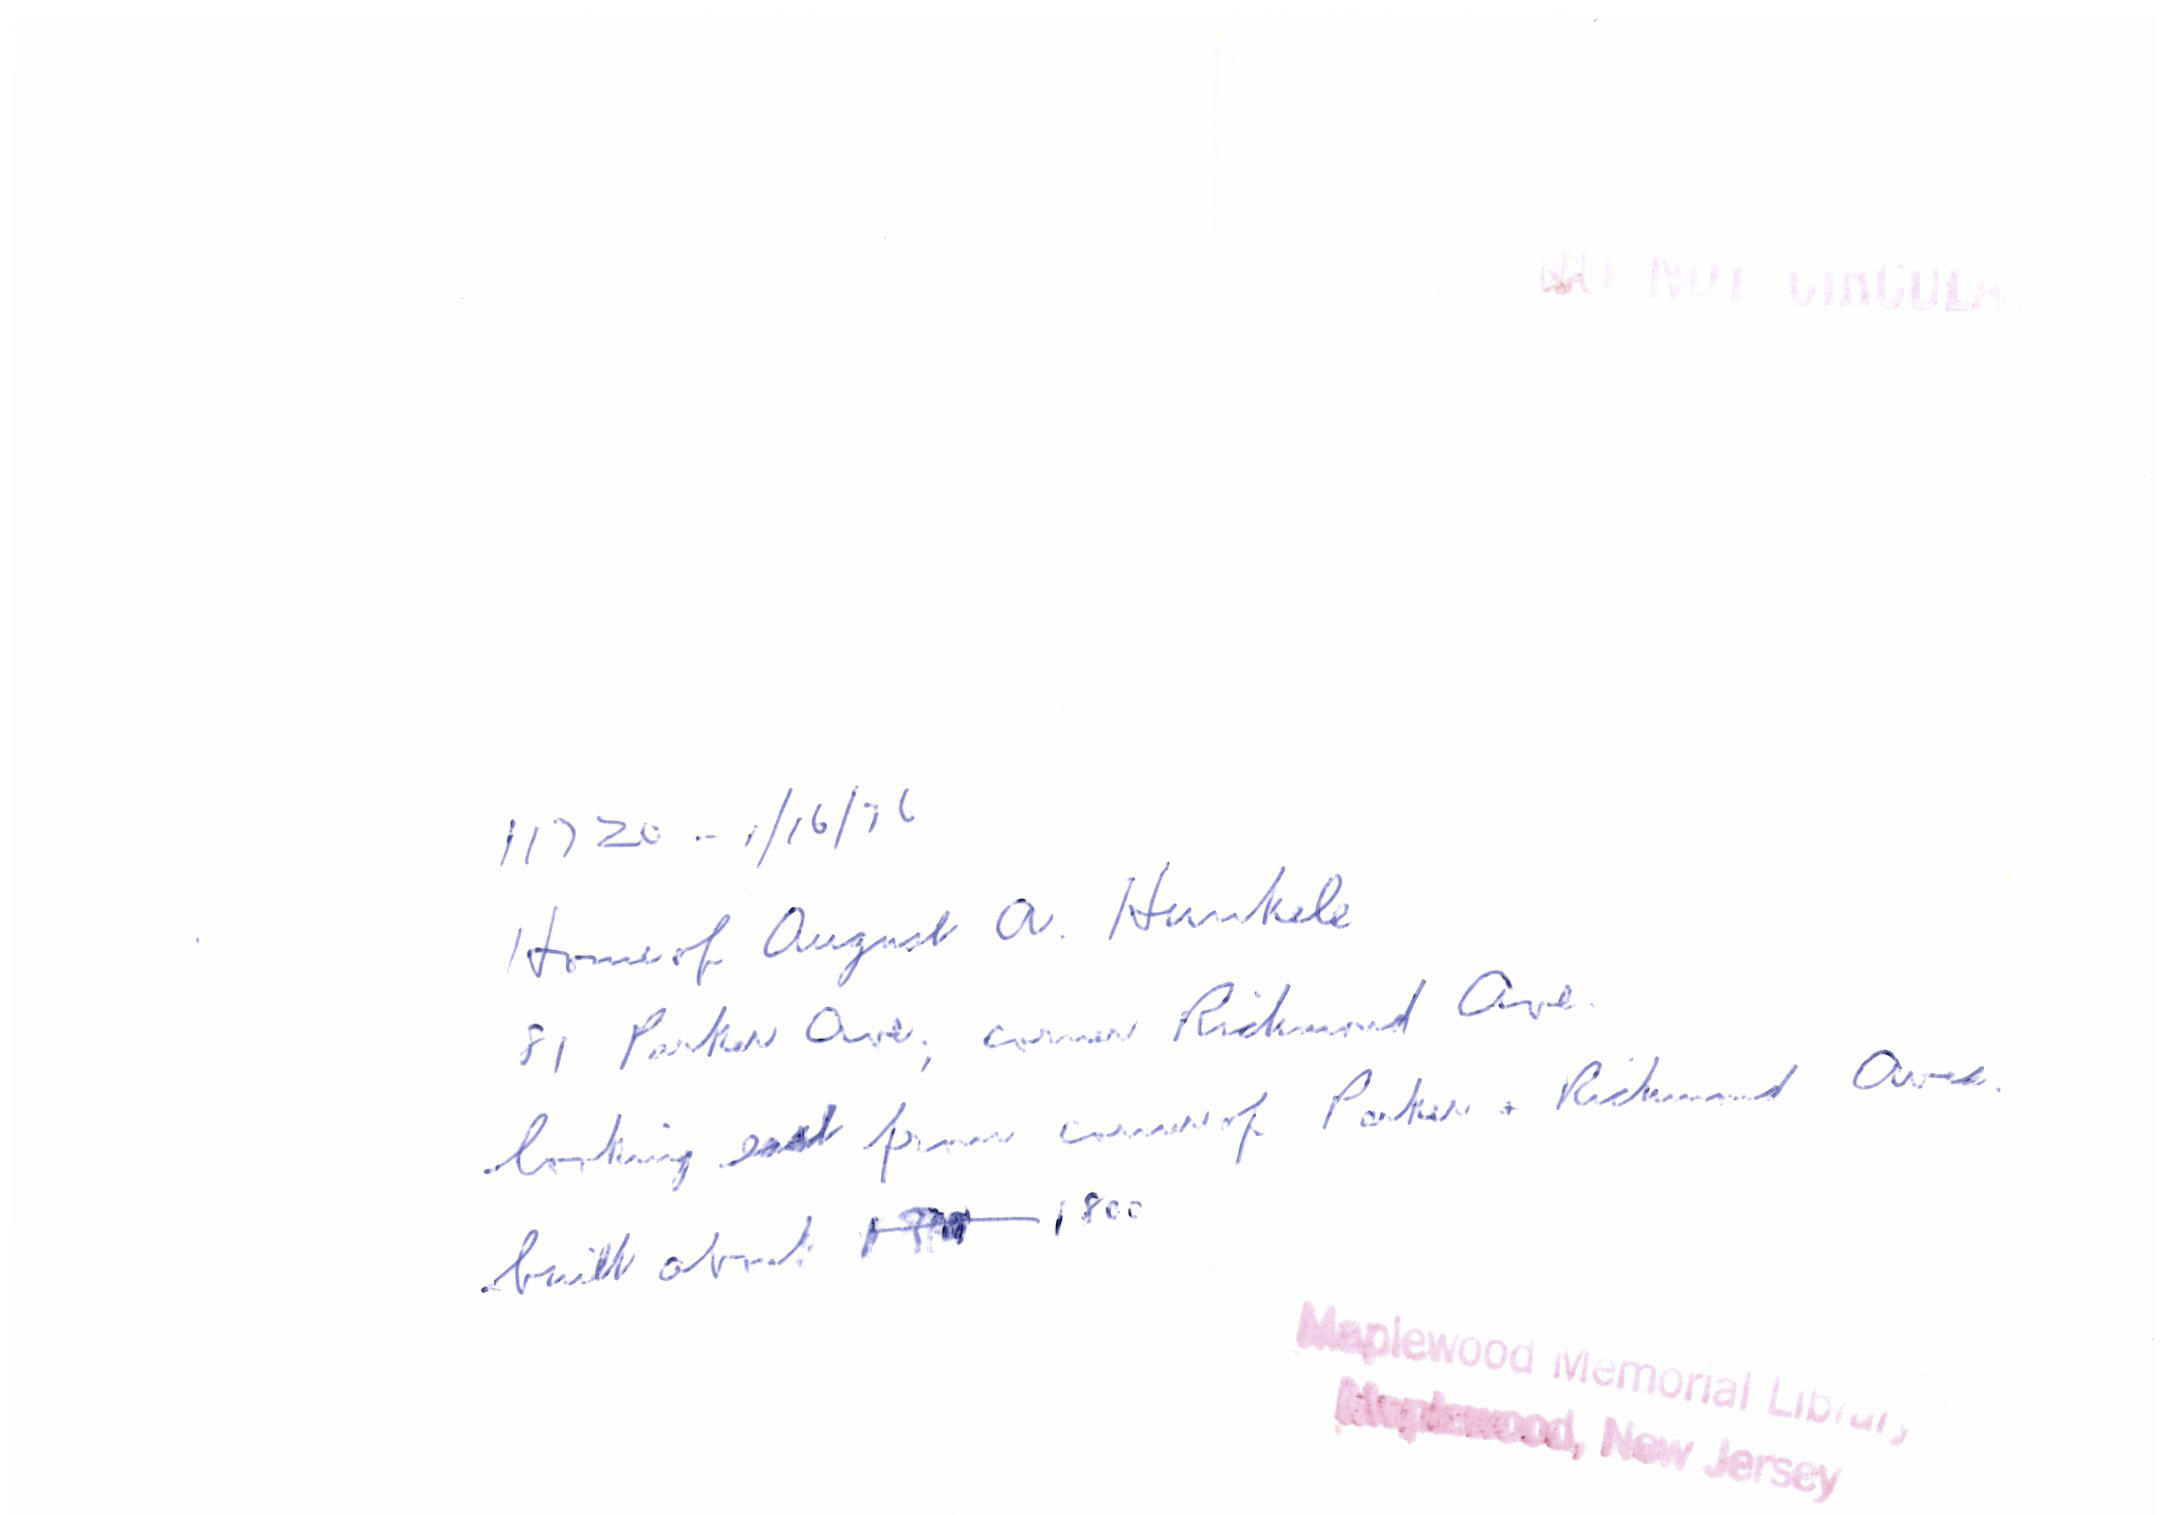 DO NOT CIRCULA
11720 - 1/16/76
Home of August A. Hunkele
81 Parker Ave., corner Richmond Ave.
looking east from corner of Parker + Richmond Aves.
built about 1800
Maplewood Memorial Library
Maplewood, New Jersey